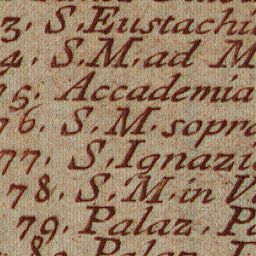 3. S. Eustachi
4. S. M. ad M
75. Accademia
76. S. M. sopra
77. S. Ignazi
78. S. M. in V
79. Palaz. Pa
80. Palaz.